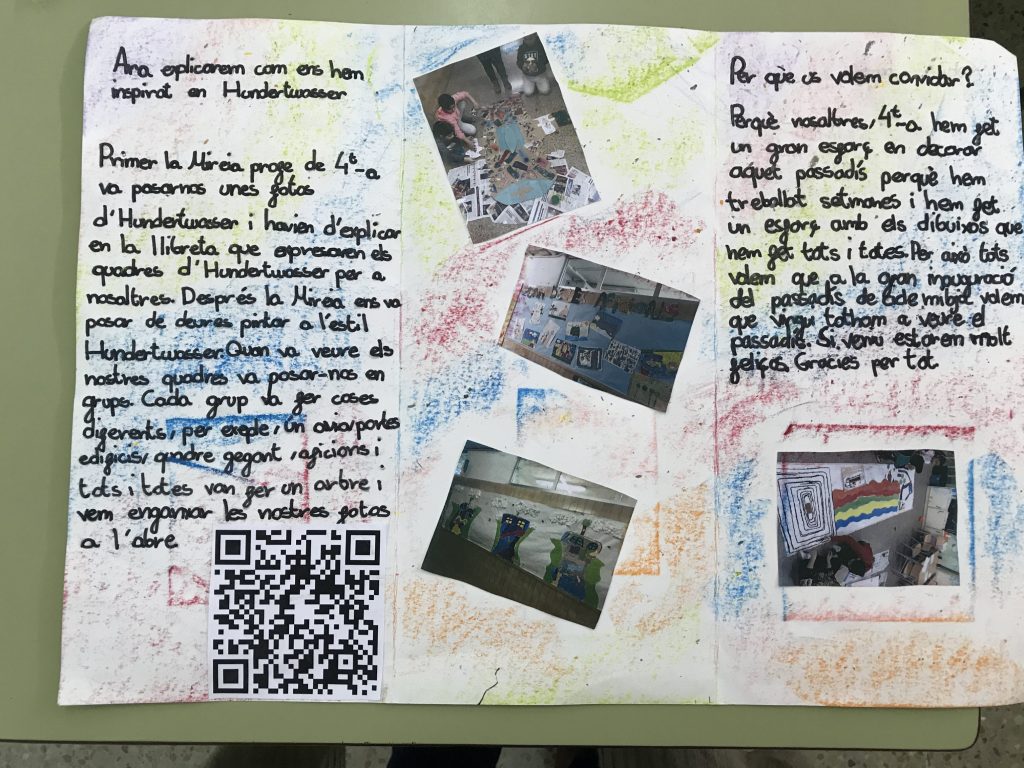 Ara eplicarem com ens hem
inspirat en Hundertwasser
Primer la Mireia profe de 4t-a
va pasarnos unes fotos
d'Hundertwasser i havien d'explicar
en la llibreta que espresaven els
quadres d'Hundertwasser per a
nosaltres. Després la Mireia ens va
posar de deures pintar a l'estil
Hundertwasser. Quan va veure els
nostres quadres va posar-nos en
grups. Cada grup va fer coses
diferents, per exeple, un
edificis, quadre gegant, aficions i
tots i totes van fer un arbre i
vem enganxar les nostres fotos
a l'abre
Per què us volem convidar?
Perquè nosaltres, 4t-a hem fet
un gran esforç en decorar
aquet passadís perquè hem
treballat setmanes i hem fet
un esforç amb els dibuixos que
hem fet tots i totes. Per això tots
volem que a la gran inauguració
del passadís de cicle mitjà volem
que vingui tothom a veure el
passadís. Si veniu estarem molt
feliços. Gracies per tot